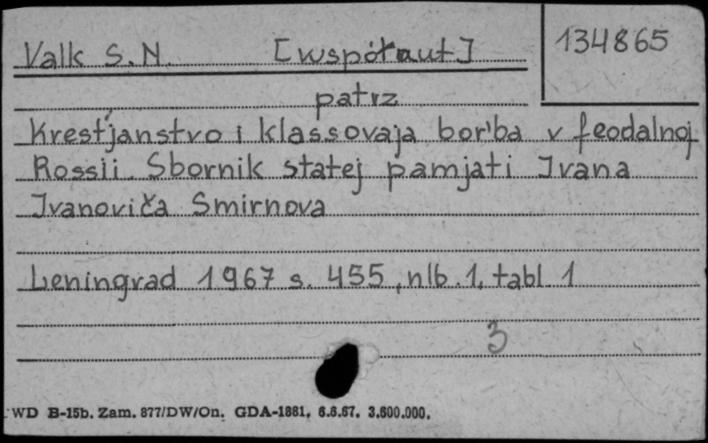 Valk S.N. [współaut] 134865
patrz
Krest'janstvo i klassovaja bor'ba v feodalnoj
Rossii. Sbornik statej pamjati Ivana
Ivanoviča Smirnova
Leningrad 1967 s. 455, nlb. 1, tabl 1
3
WD B-15b. Zam. 877/DW/On. GDA-1881. 6.6.67. 3.600.000.